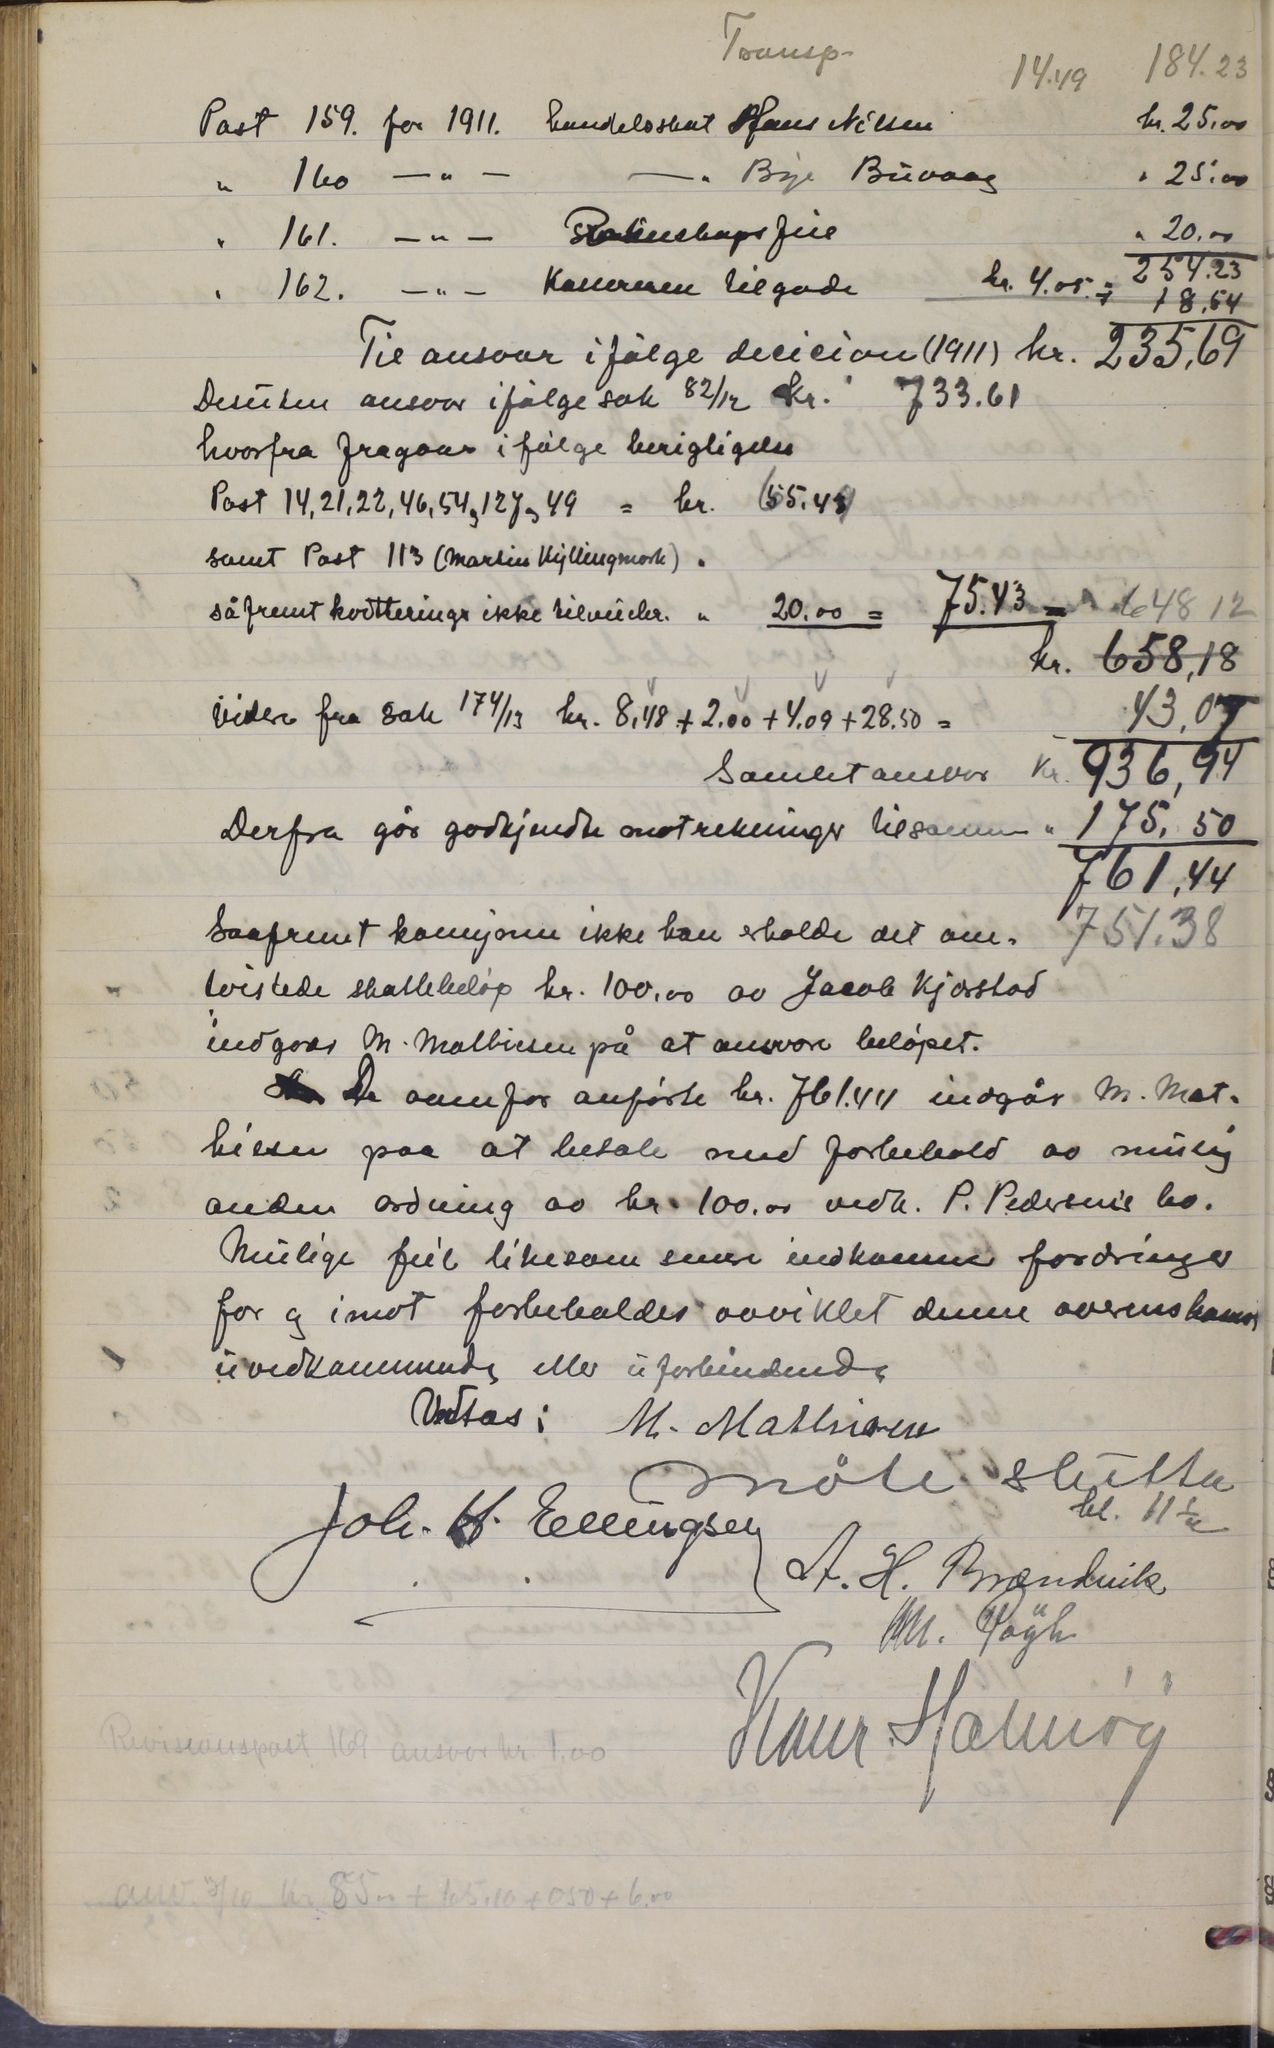 Transp. 14.49 184.23
Post 159. for 1911. handelsskat Hans Nilsen kr. 25.00
" 160 — " — — " Buvaag " 25.00
" 161. — " — Regnskapsfeil " 20.00
254.23
" 162. — " — Kassereren tilgode kr. 4.05 = 18.54
Til ansvar ifølge decicion (1911) kr. 235,69
Desuten ansvar ifølge sak 82/12 kr. 733.61
hvorfra fragaar ifølge berigtigelse
Post 14, 21, 22, 46, 54, 127, 49 = kr. 55.43
samt Post 113 (Martin Kyllingmark) .
såfremt kvittering ikke tilveiebr. " 20.00 = 75.43 = 648 12
kr. 658,18
Videre fra sak 174/13 kr. 8,48 + 2.00 + 4.09 + 28.50 = 43,07
Samlet ansvar kr. 936,94
Derfra går godkjendte motrekninger tilsammen " 175.50
761,44
Saafremt kemneren ikke kan erholde det om- 751.38
tvistede skattebeløp kr. 100.00 av Jacob Kjørstad
indgaar M. Mathiesen på at ansvare beløpet.
De ovenfor anførte kr. 761.44 indgår M. Mat-
hiesen paa at betale med forbehold av mulig
anden ordning av kr. 100.00 vedk. P. Pedersens bo.
Mulige feil likesom senere indkomne fordringer
for og imot forbeholdes avviklet denne overenskomst
uvedkommende eller uforbindende
Vedtas: M. Mathiesen
Møte slutta
kl. 11 1/2
Joh. H. Ellingsen
A. H. Brændvik
M. Høgh
Hans Halmøy
Revisionspost 169 ansvar kr. 1.00
anv. 3/10 kr. 85.00 + 65.10 + 0.50 + 6.00